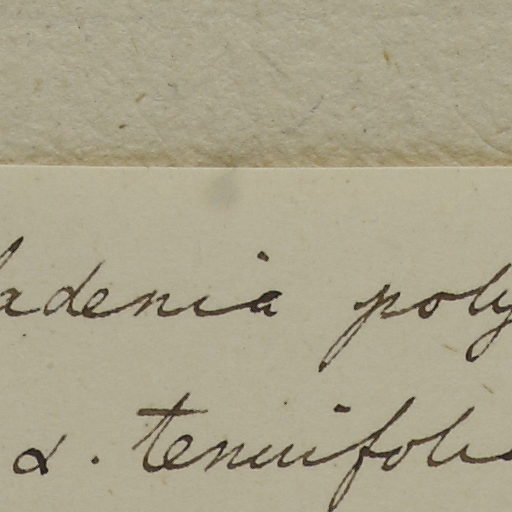 adenia poly
α. tenuifoli